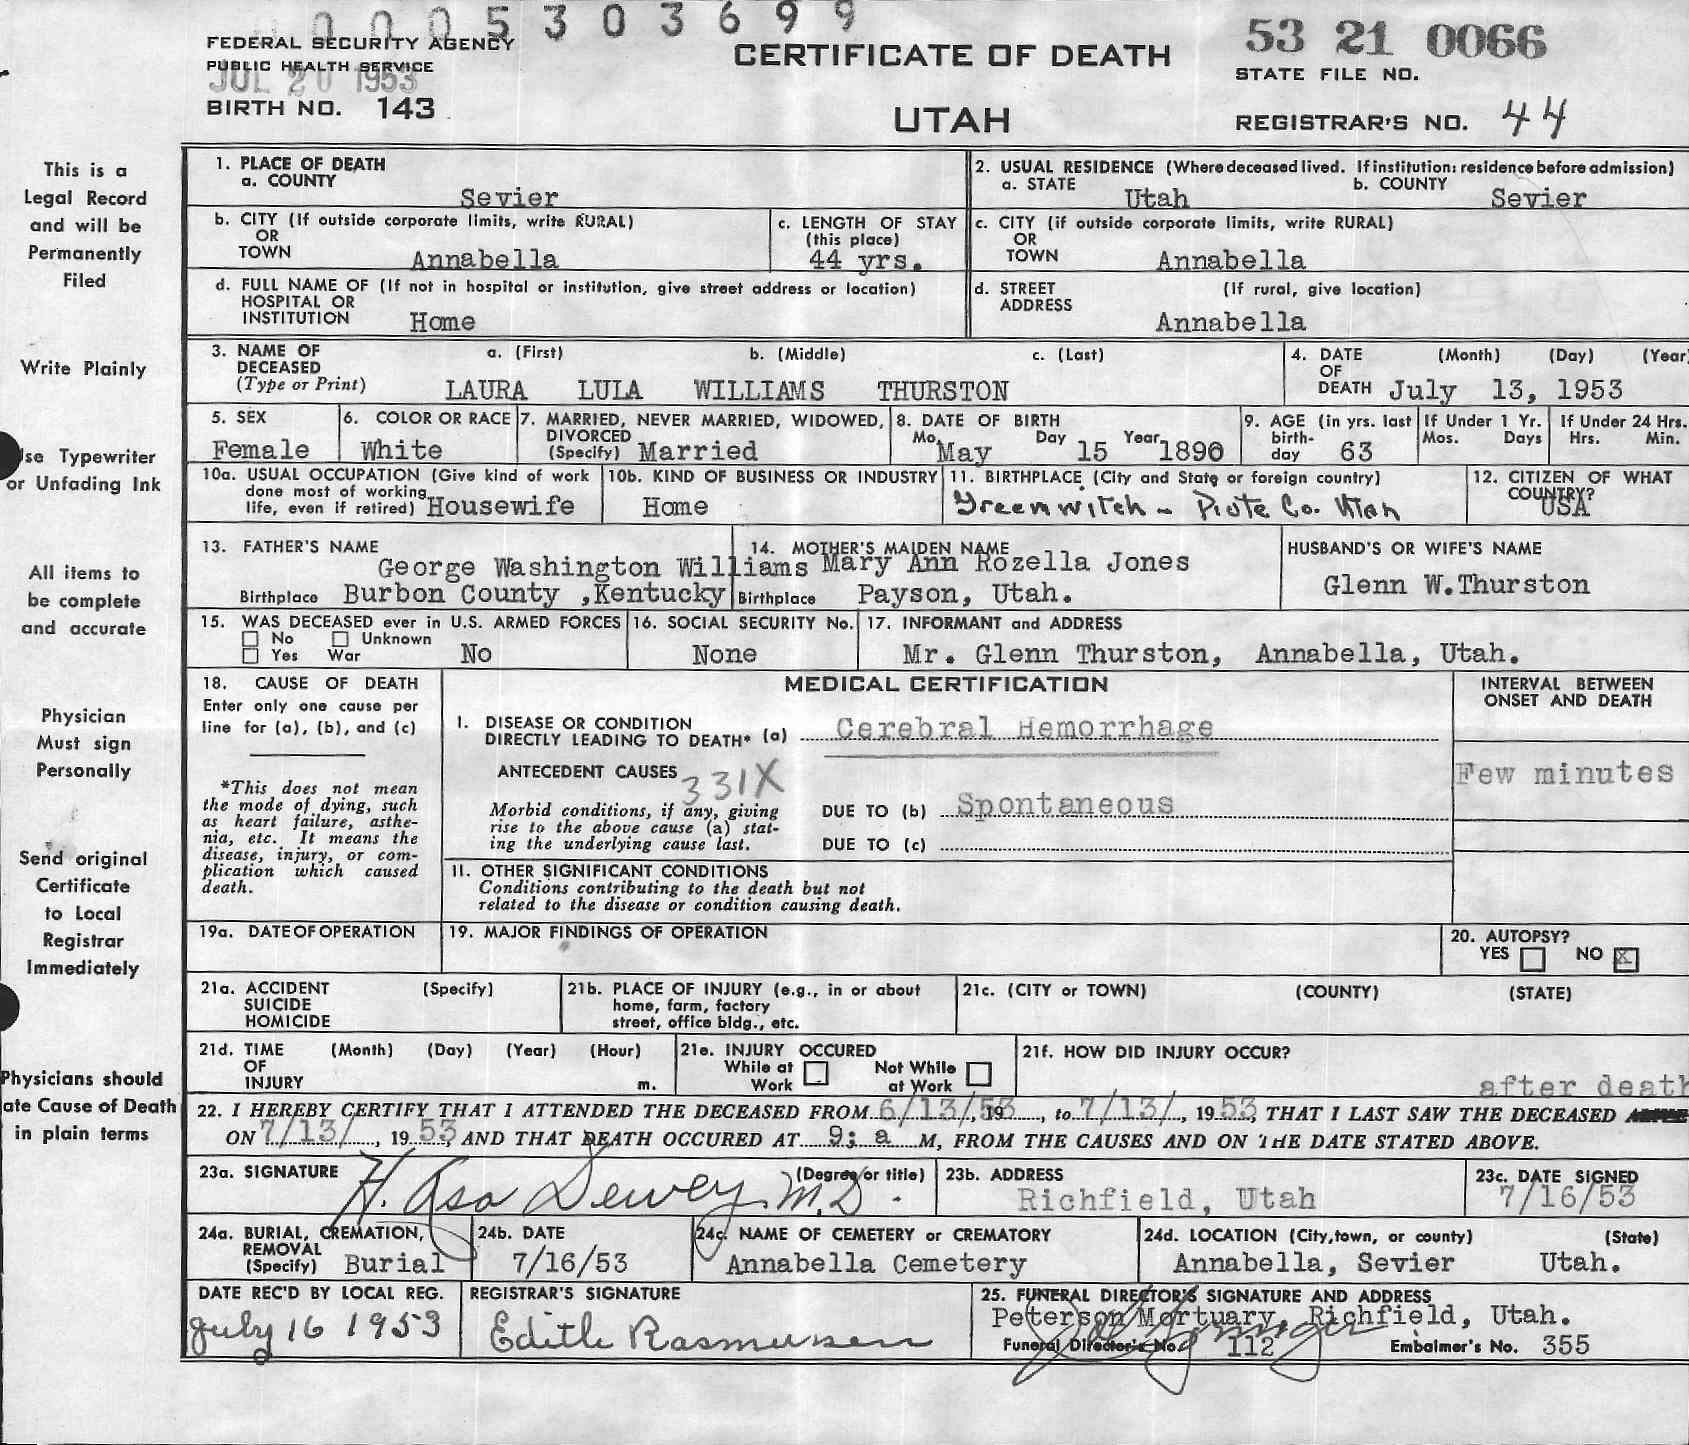 0005303699
FEDERAL SECURITY AGENCY
PUBLIC HEALTH SERVICE
JUL 20 1953
BIRTH NO. 143
CERTIFICATE OF DEATH
UTAH
53 21 0066
STATE FILE NO.
REGISTRAR'S NO. 44
This is a
Legal Record
and will be
Permanently
Filed
Write Plainly
se Typewriter
or Unfading Ink
All items to
be complete
and accurate
Physician
Must sign
Personally
Send original
Certificate
to Local
Registrar
Immediately
Physicians should
ate Cause of Death
in plain terms
1. PLACE OF DEATH
a. COUNTY
Sevier
2. USUAL RESIDENCE (Where deceased lived. If institution: residence before admission)
a. STATE Utah b. COUNTY Sevier
b. CITY (If outside corporate limits, write RURAL)
OR
TOWN Annabella
c. LENGTH OF STAY
(this place)
44 yrs.
c. CITY (if outside corporate limits, write RURAL)
OR
TOWN Annabella
d. FULL NAME OF (If not in hospital or institution, give street address or location)
HOSPITAL OR
INSTITUTION Home
d. STREET (If rural, give location)
ADDRESS
Annabella
3. NAME OF a. (First) b. (Middle) c. (Last)
DECEASED
(Type or Print) LAURA LULA WILLIAMS THURSTON
4. DATE (Month) (Day) (Year)
OF
DEATH July 13, 1953
5. SEX
Female
6. COLOR OR RACE
White
7. MARRIED, NEVER MARRIED, WIDOWED,
DIVORCED
(Specify) Married
8. DATE OF BIRTH
Mo. Day Year
May 15 1890
9. AGE (in yrs. last
birth-
day 63
If Under 1 Yr.
Mos. Days
If Under 24 Hrs.
Hrs. Min.
10a. USUAL OCCUPATION (Give kind of work
done most of working
life, even if retired) Housewife
10b. KIND OF BUSINESS OR INDUSTRY
Home
11. BIRTHPLACE (City and State or foreign country)
Greenwitch - Piute Co. Utah
12. CITIZEN OF WHAT
COUNTRY?
USA
13. FATHER'S NAME
George Washington Williams
Birthplace Burbon County ,Kentucky
14. MOTHER'S MAIDEN NAME
Mary Ann Rozella Jones
Birthplace Payson, Utah.
HUSBAND'S OR WIFE'S NAME
Glenn W.Thurston
15. WAS DECEASED ever in U.S. ARMED FORCES
No Unknown
Yes War No
16. SOCIAL SECURITY No.
None
17. INFORMANT and ADDRESS
Mr. Glenn Thurston, Annabella, Utah.
18. CAUSE OF DEATH
Enter only one cause per
line for (a), (b), and (c)
*This does not mean
the mode of dying, such
as heart failure, asthe-
nia, etc. It means the
disease, injury, or com-
plication which caused
death.
MEDICAL CERTIFICATION
I. DISEASE OR CONDITION
DIRECTLY LEADING TO DEATH* (a) Cerebral Hemorrhage
ANTECEDENT CAUSES 331X
Morbid conditions, if any, giving
rise to the above cause (a) stat-
ing the underlying cause last.
DUE TO (b) Spontaneous
DUE TO (c)
11. OTHER SIGNIFICANT CONDITIONS
Conditions contributing to the death but not
related to the disease or condition causing death.
INTERVAL BETWEEN
ONSET AND DEATH
Few minutes
19a. DATE OF OPERATION
19. MAJOR FINDINGS OF OPERATION
20. AUTOPSY?
YES NO X
21a. ACCIDENT (Specify)
SUICIDE
HOMICIDE
21b. PLACE OF INJURY (e.g., in or about
home, farm, factory
street, office bldg., etc.
21c. (CITY or TOWN) (COUNTY) (STATE)
21d. TIME (Month) (Day) (Year) (Hour)
OF
INJURY m.
21e. INJURY OCCURED
While at Not While
Work at Work
21f. HOW DID INJURY OCCUR?
after death
22. I HEREBY CERTIFY THAT I ATTENDED THE DECEASED FROM 6/13/, 1953, to 7/13/, 1953, THAT I LAST SAW THE DECEASED
ON 7/13/, 1953 AND THAT DEATH OCCURED AT 9: a M, FROM THE CAUSES AND ON THE DATE STATED ABOVE.
23a. SIGNATURE (Degree or title)
H. Asa Dewey M.D.
23b. ADDRESS
Richfield, Utah
23c. DATE SIGNED
7/16/53
24a. BURIAL, CREMATION,
REMOVAL
(Specify) Burial
24b. DATE
7/16/53
24c. NAME OF CEMETERY or CREMATORY
Annabella Cemetery
24d. LOCATION (City,town, or county) (State)
Annabella, Sevier Utah.
DATE REC'D BY LOCAL REG.
July 16 1953
REGISTRAR'S SIGNATURE
Edith Rasmussen
25. FUNERAL DIRECTOR'S SIGNATURE AND ADDRESS
Peterson Mortuary, Richfield, Utah.
Funeral Director's No. 112 Embalmer's No. 355